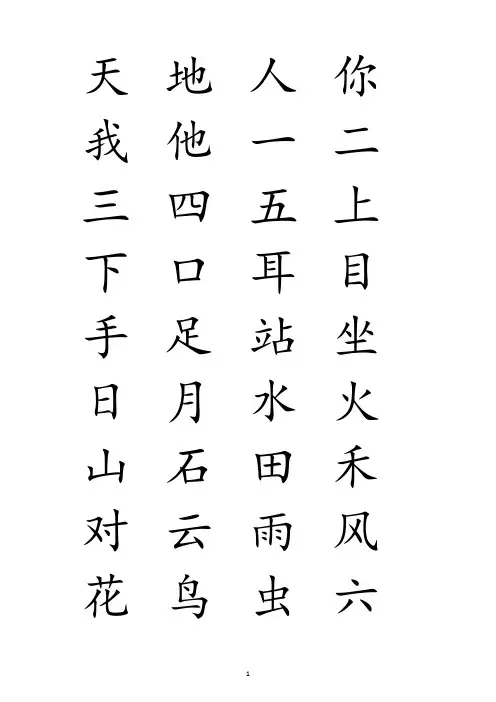 天 地 人 你
我 他 一 二
三 四 五 上
下 口 耳 目
手 足 站 坐
日 月 水 火
山 石 田 禾
对 云 雨 风
花 鸟 虫 六
1